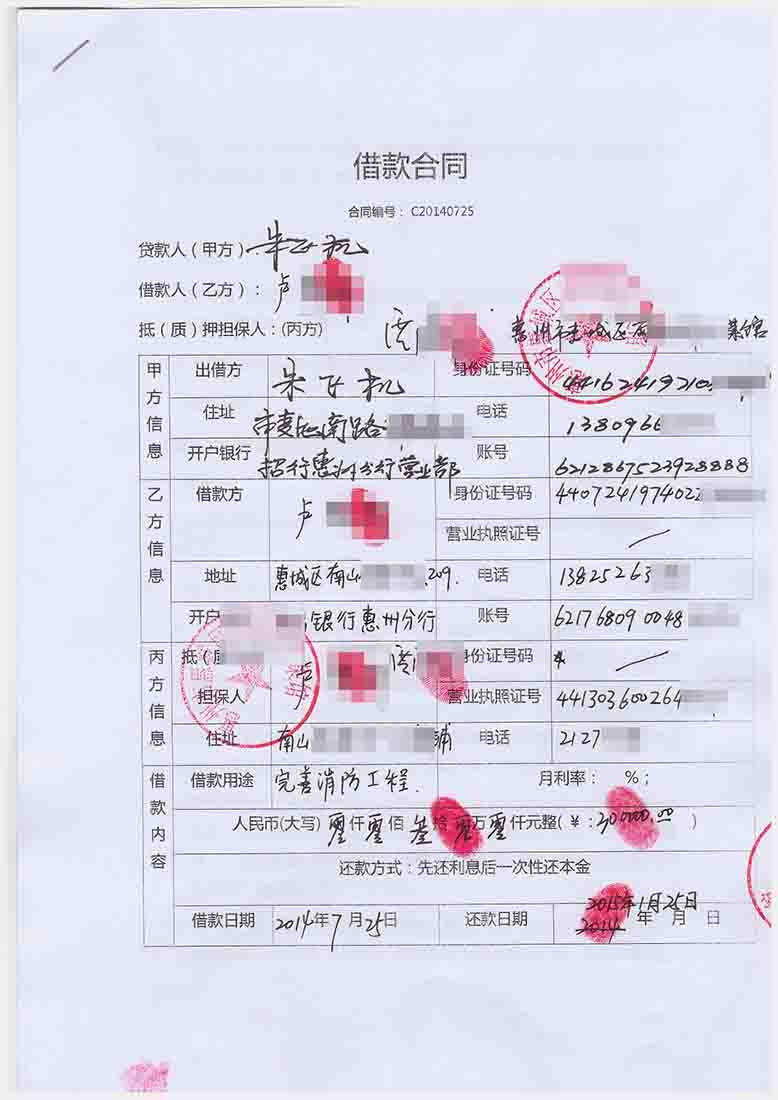 借款合同
合同编号： C20140725
贷款人（甲方）：朱飞机
借款人（乙方）：卢
抵（质）押担保人：(丙方) 惠州市惠城区
甲方信息
出借方 朱飞机 身份证号码 44162419210
住址 南路 电话 1380966
开户银行 招行惠州分行营业部 账号 6212867523928888
乙方信息
借款方 卢 身份证号码 4407241974022
营业执照证号 /
地址 惠城区南山 209. 电话 13825263
开户 银行惠州分行 账号 621768090048
丙方信息
抵（质 卢 身份证号码 /
担保人 营业执照证号 441303600264
住址 南山 铺 电话 2127
借款内容
借款用途 完善消防工程. 月利率： %；
人民币(大写) 零仟零佰叁拾零万零仟元整(￥： )
还款方式：先还利息后一次性还本金
借款日期 2014年7月25日 还款日期 2015年1月25日
2014年 月 日